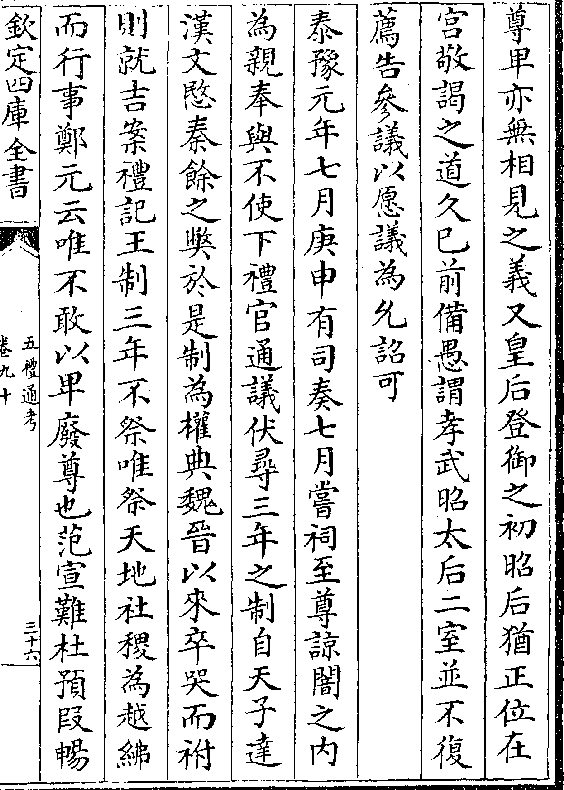 尊卑亦無相見之義又皇后登御之初昭后猶正位在
宫敬謁之道久已前備愚謂孝武昭太后二室並不復
薦告參議以愿議為允詔可
泰豫元年七月庚申有司奏七月嘗祠至尊諒闇之内
為親奉與不使下禮官通議伏尋三年之制自天子達
漢文愍秦餘之獘於是制為權典魏晉以來卒哭而祔
則就吉案禮記王制三年不祭唯祭天地社稷為越紼
而行事鄭元云唯不敢以卑廢尊也范宣難杜預段暢
欽定四庫全書
五禮通考
卷九十
三十六